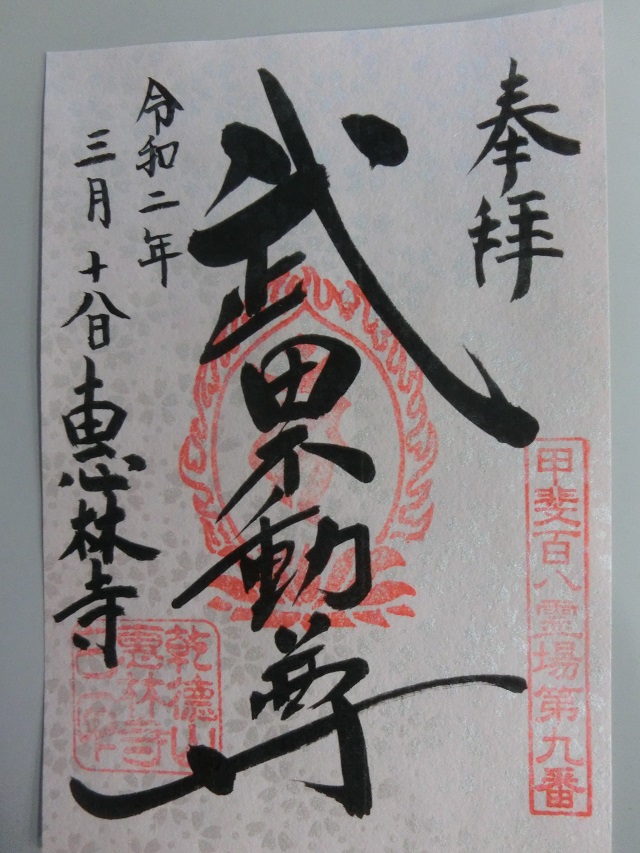 奉拝
甲斐百八霊場第九番
武田不動尊
令和二年
三月十八日
恵林寺
乾徳山
恵林寺